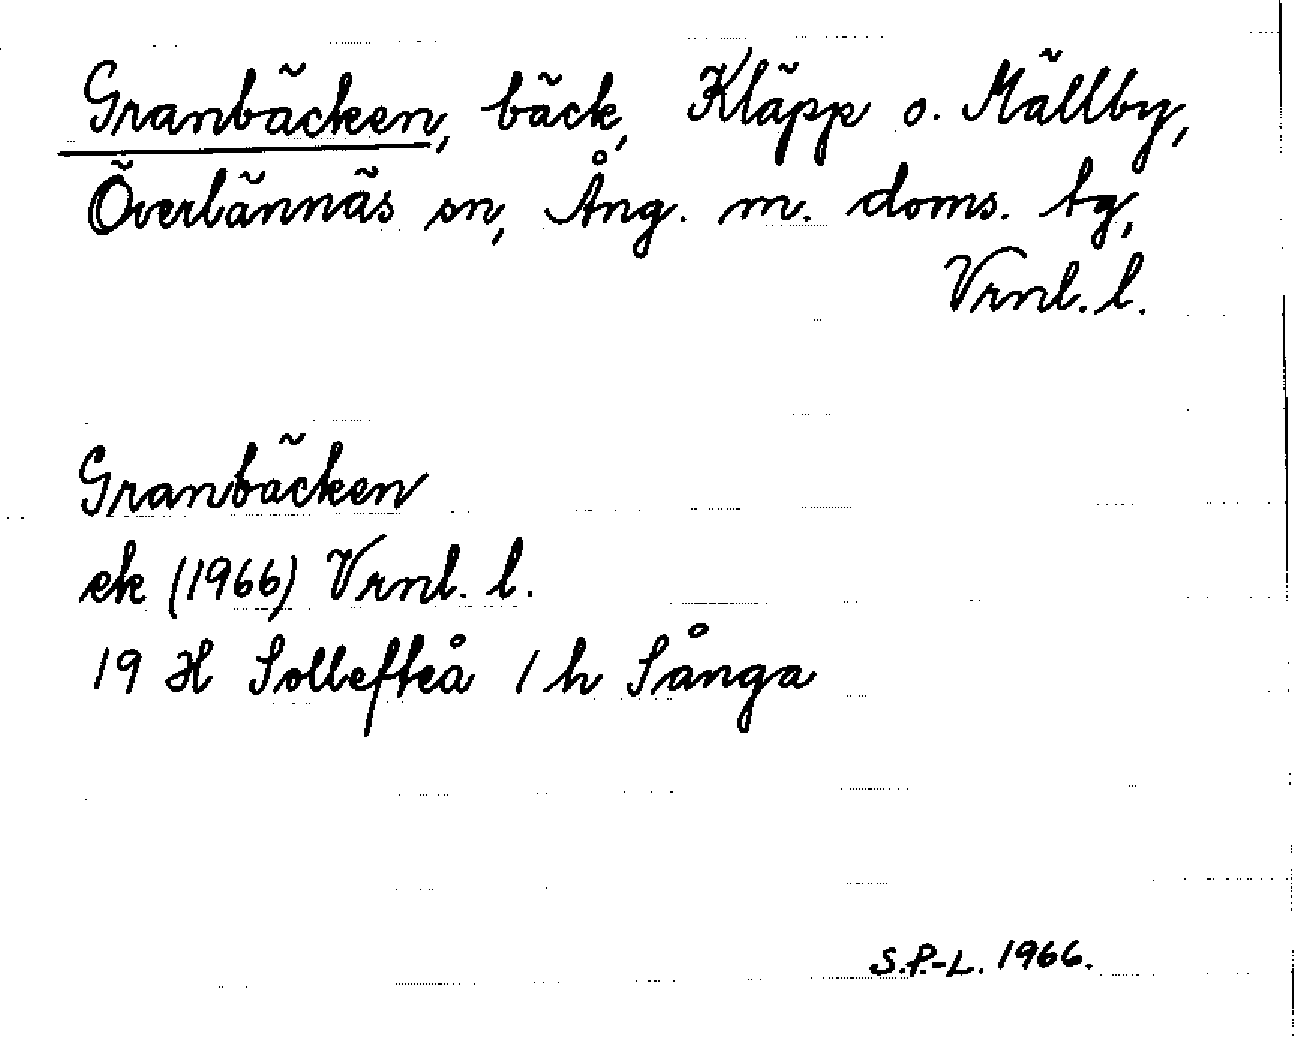 Granbäcken, bäck, Kläpp o. Mällby,
Överlännäs sn, Ång. m. doms. tg,
Vrnl. l.
Granbäcken
ek (1966) Vrnl. l.
19 H Sollefteå 1 h Sånga
S.P.-L. 1966.